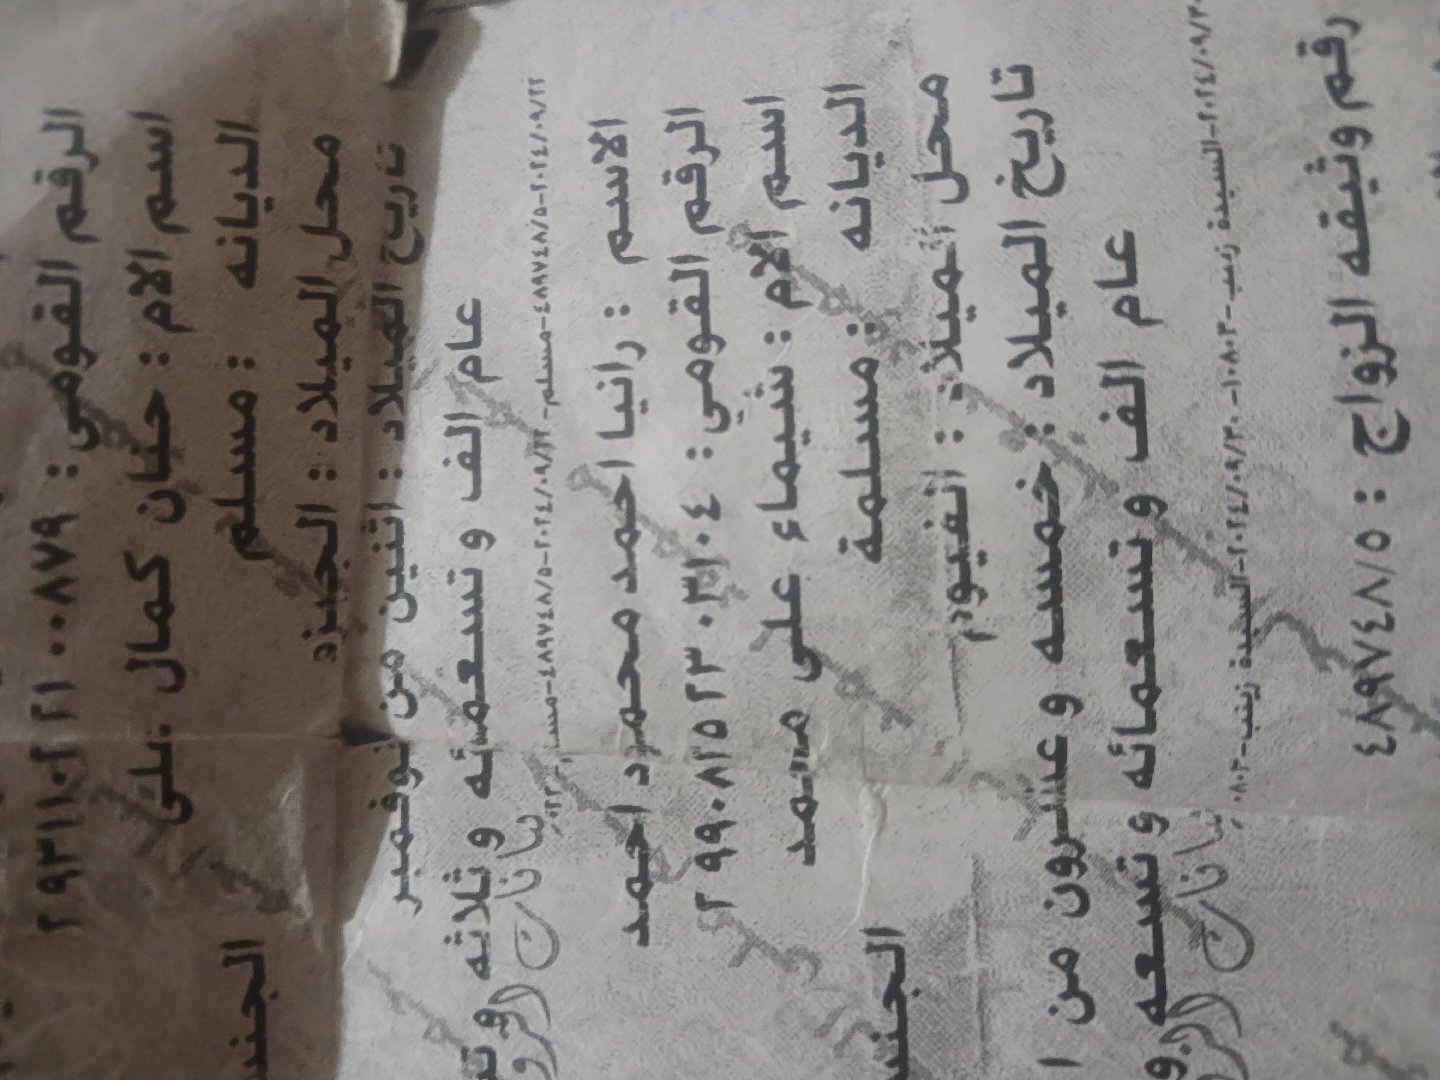 الرقم القومي : ٢٩٣١١٠٢٢١٠٠٨٧٩
اسم الام : حنان كمال
الديانه : مسلم الجنس
محل الميلاد : الجيزه
تاريخ الميلاد : اثنين من نوفمبر
عام الف و تسعمائه و ثلاثه و
٢٠٢٤/٠٩/٢٢-٤٨٩٧٤٨/٥-مسلم-٢٠٢٤/٠٩/٢٢-٤٨٩٧٤٨/٥-مسلم
الاسم : رانيا احمد محمود احمد
الرقم القومي : ٢٩٩٠٨٢٥٢٣٠٣١٠٤
اسم الام : شيماء على محمد
الديانه : مسلمة الجنس
محل الميلاد : الفيوم
تاريخ الميلاد : خمسه و عشرون من ا
عام الف و تسعمائه و تسعه و
السيدة زينب-١٠٨٠٣-٢٠٢٤/٠٩/٣٠-السيدة زينب
رقم وثيقه الزواج : ٤٨٩٧٤٨/٥